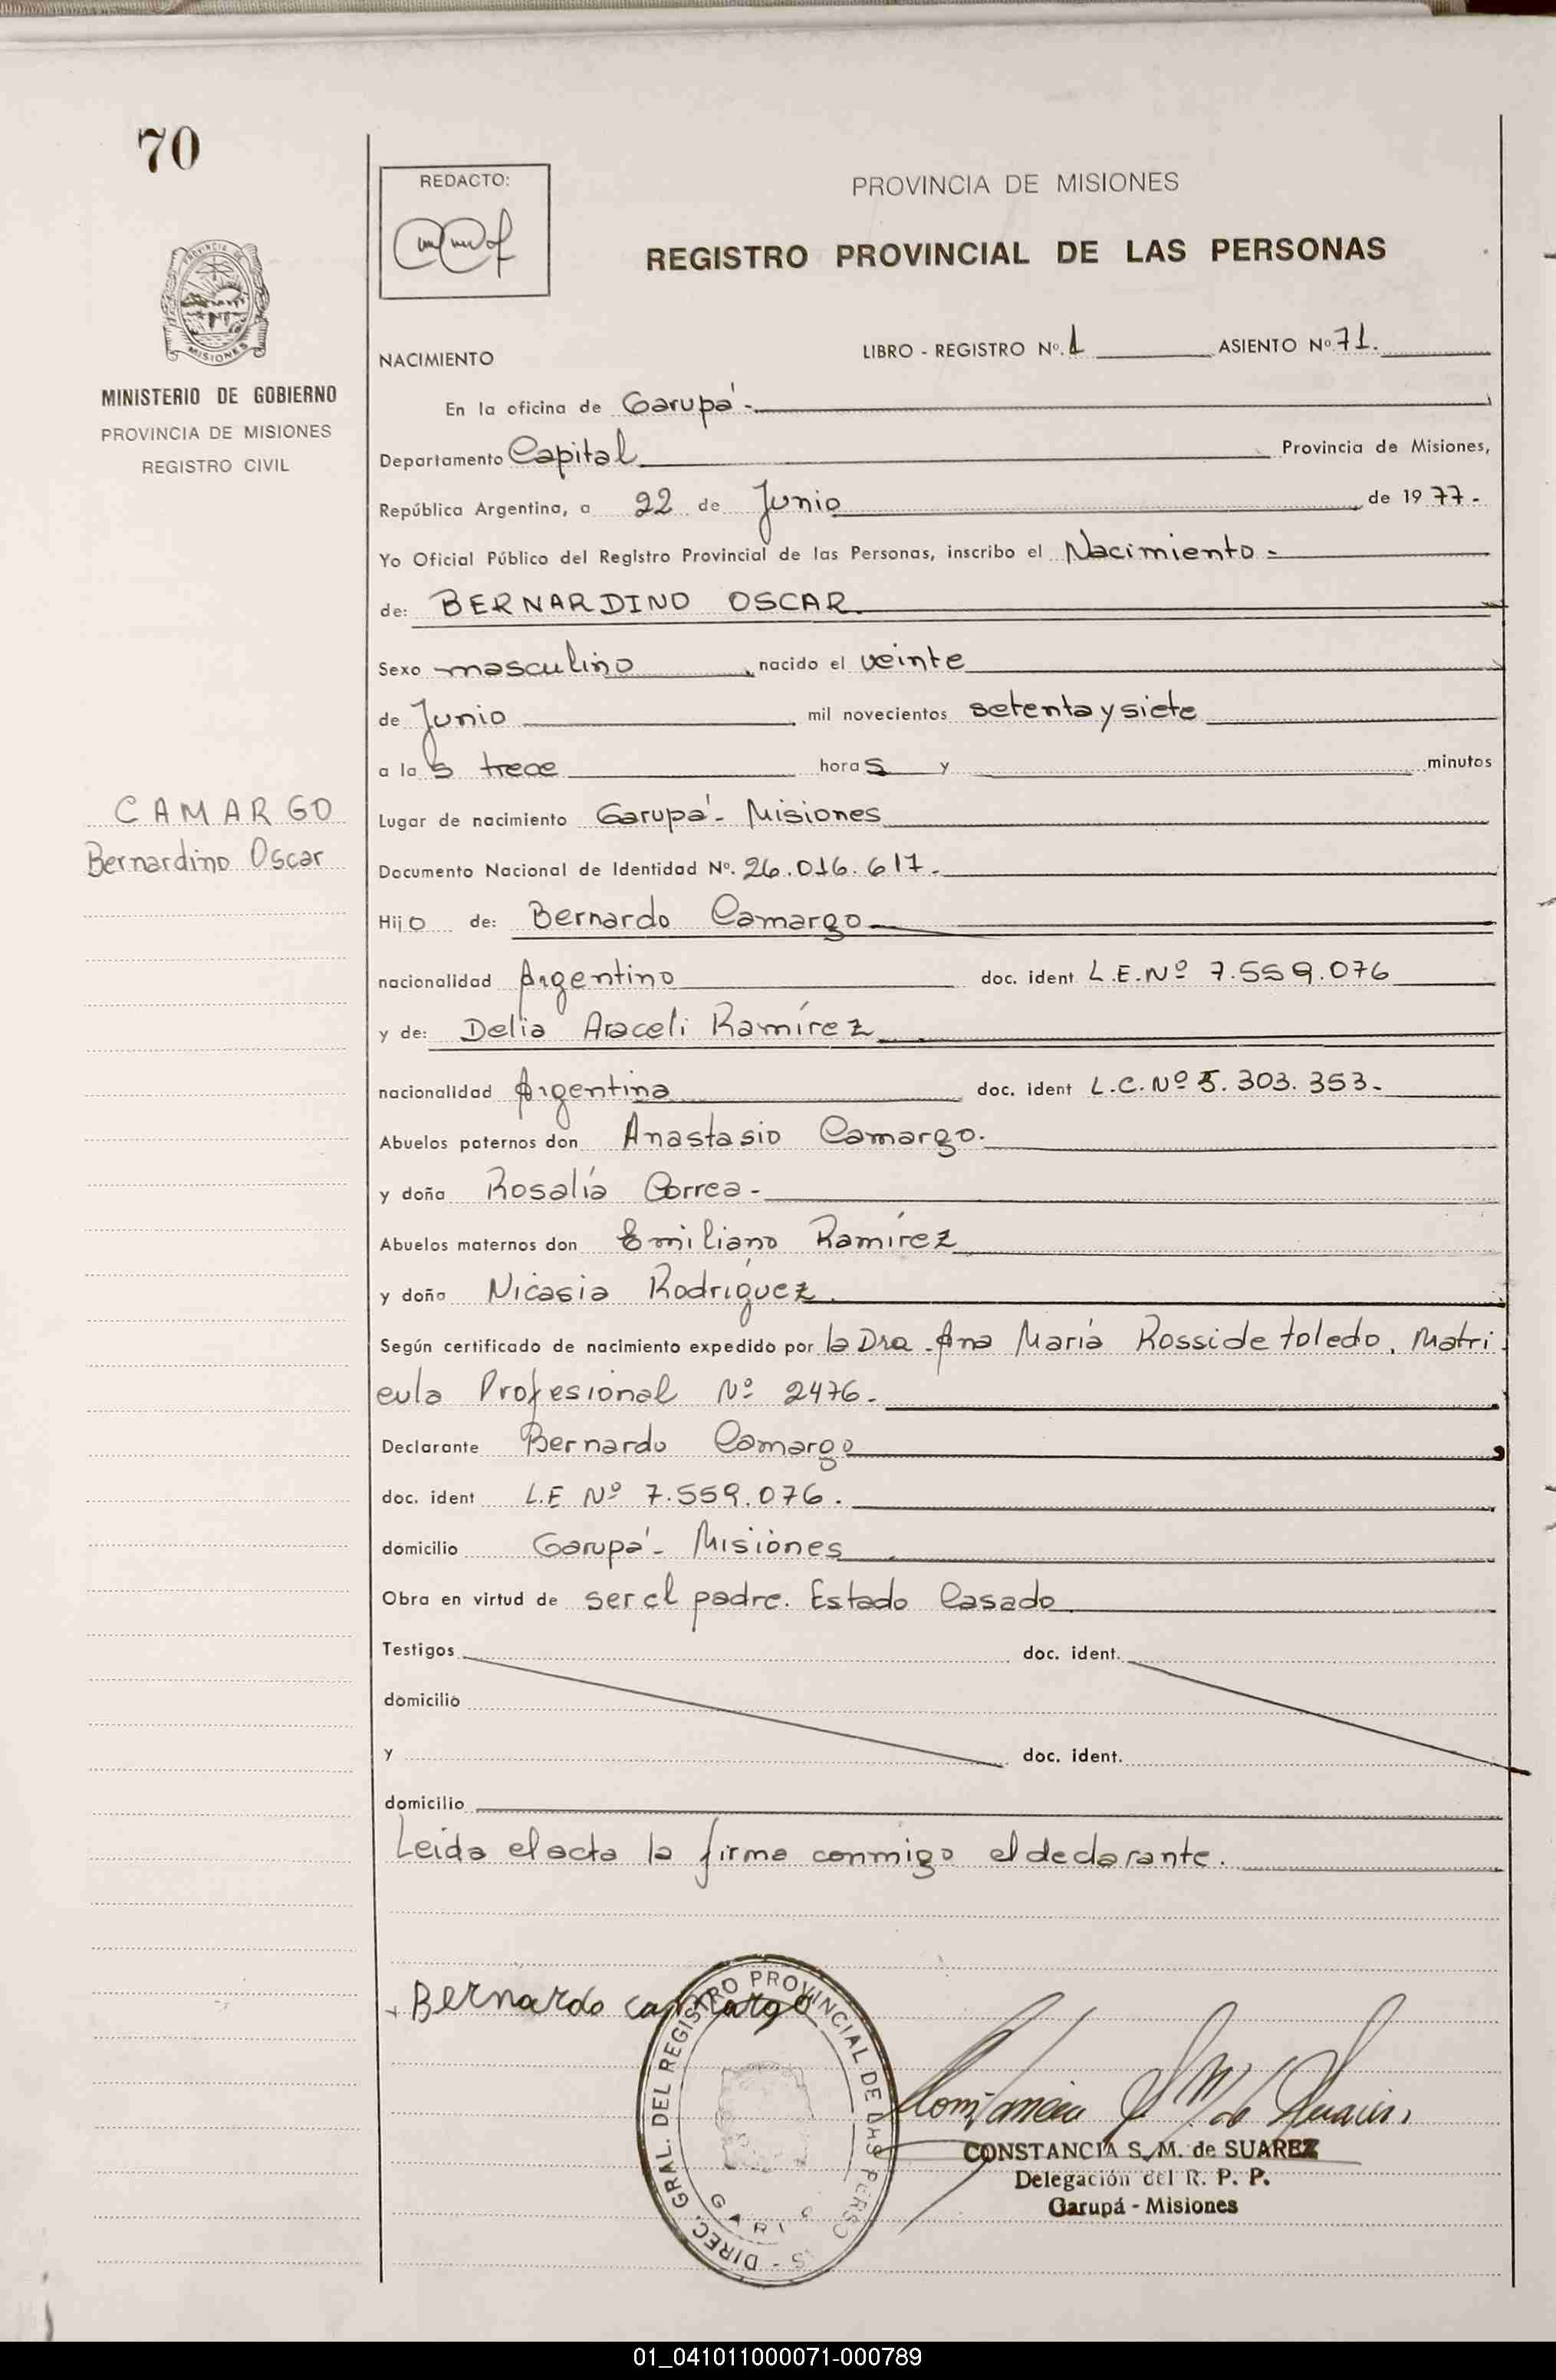 70
REDACTO:
PROVINCIA DE MISIONES
REGISTRO PROVINCIAL DE LAS PERSONAS
PROVINCIA
MISIONES
MINISTERIO DE GOBIERNO
PROVINCIA DE MISIONES
REGISTRO CIVIL
NACIMIENTO
LIBRO - REGISTRO Nº. 1 ASIENTO Nº 71.
En la oficina de Garupá -
Departamento Capital Provincia de Misiones,
República Argentina, a 22 de Junio de 1977-
Yo Oficial Público del Registro Provincial de las Personas, inscribo el Nacimiento -
de: BERNARDINO OSCAR
Sexo masculino, nacido el veinte
de Junio mil novecientos setenta y siete
a las trece horas y minutos
CAMARGO
Bernardino Oscar
Lugar de nacimiento Garupá - Misiones
Documento Nacional de Identidad Nº. 26.016.617.-
Hijo de: Bernardo Camargo
nacionalidad Argentino doc. ident L.E.Nº 7.559.076
y de: Delia Araceli Ramírez
nacionalidad Argentina doc. ident L.C.Nº 5.303.353-
Abuelos paternos don Anastasio Camargo.
y doña Rosalía Correa -
Abuelos maternos don Emiliano Ramírez
y doña Nicasia Rodríguez.
Según certificado de nacimiento expedido por la Dra. Ana María Rossi de toledo, Matri
cula Profesional Nº 2476.-
Declarante Bernardo Camargo
doc. ident L.E Nº 7.559.076.
domicilio Garupá - Misiones
Obra en virtud de ser el padre. Estado Casado
Testigos doc. ident.
domicilio
y doc. ident.
domicilio
Leida el acta la firma conmigo el declarante.
Bernardo camargo
DIREC. GRAL. DEL REGISTRO PROVINCIAL DE LAS
CONSTANCIA S. M. de SUAREZ
Delegación del R. P. P.
Garupá - Misiones
01_041011000071-000789